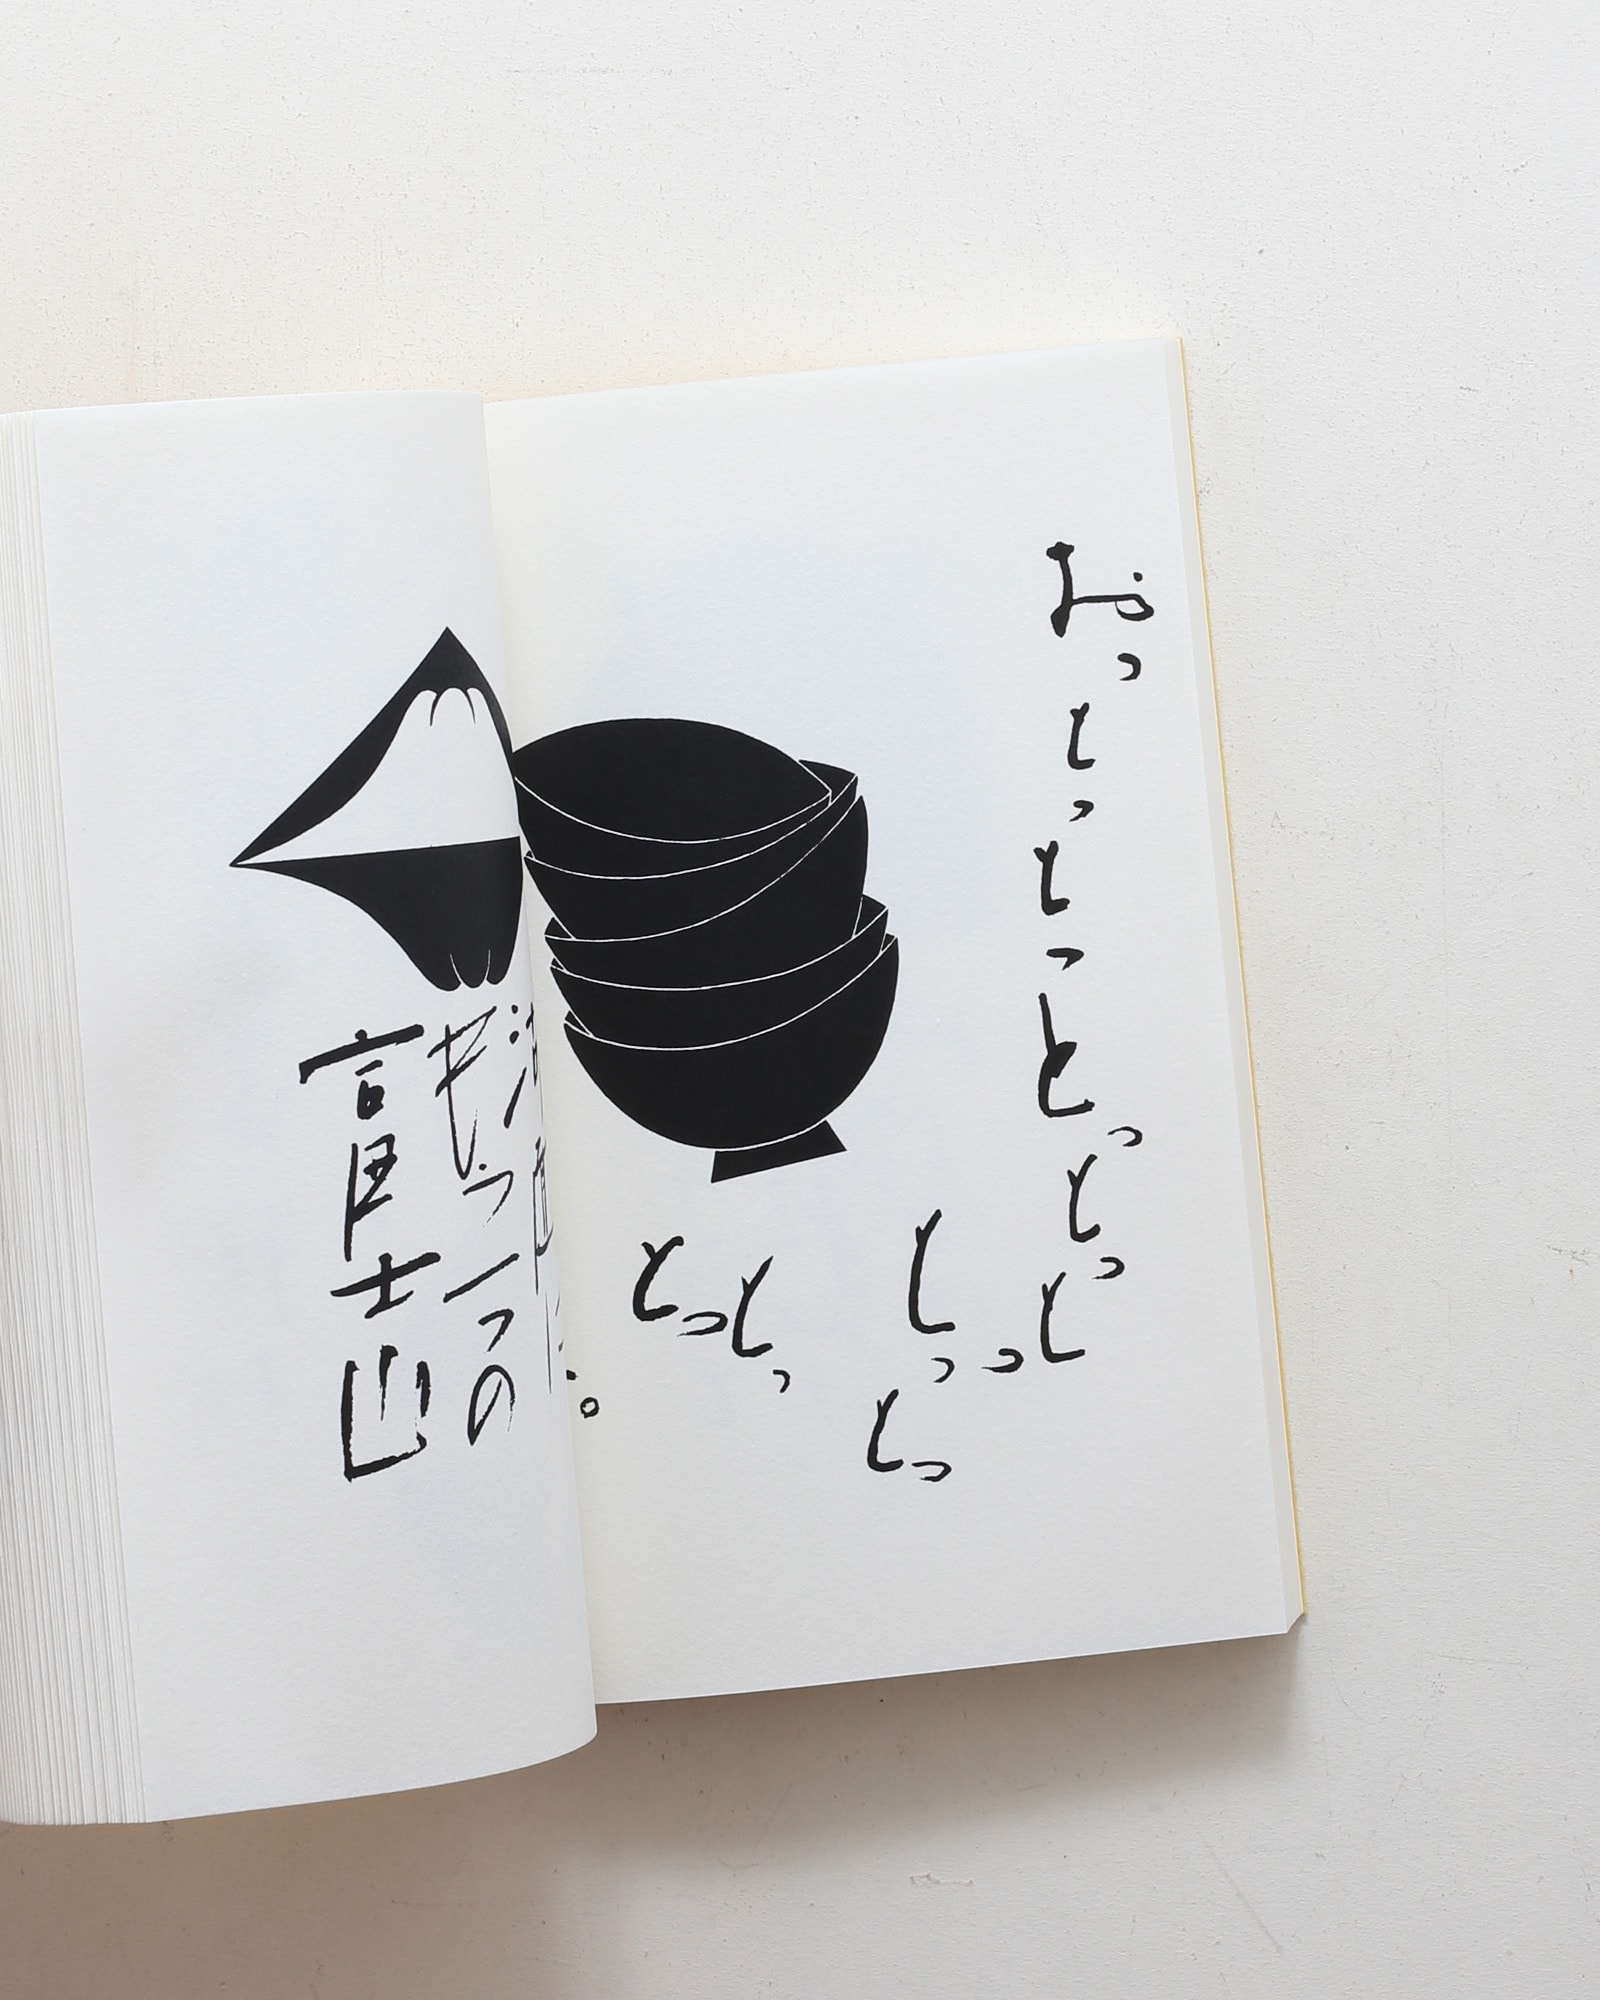 おっとっとっとっとっとっ
とっとっ
とっ
とっ
もう一つの
富士山